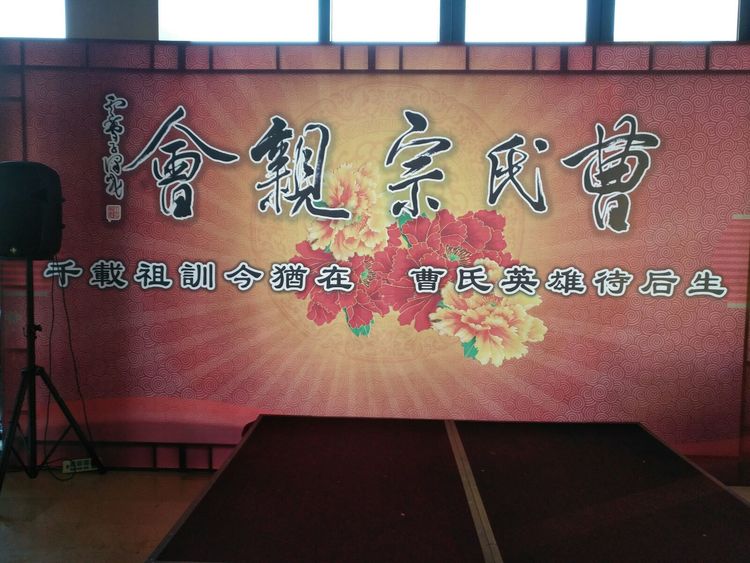 曹氏宗親會
千載祖訓今猶在 曹氏英雄待后生